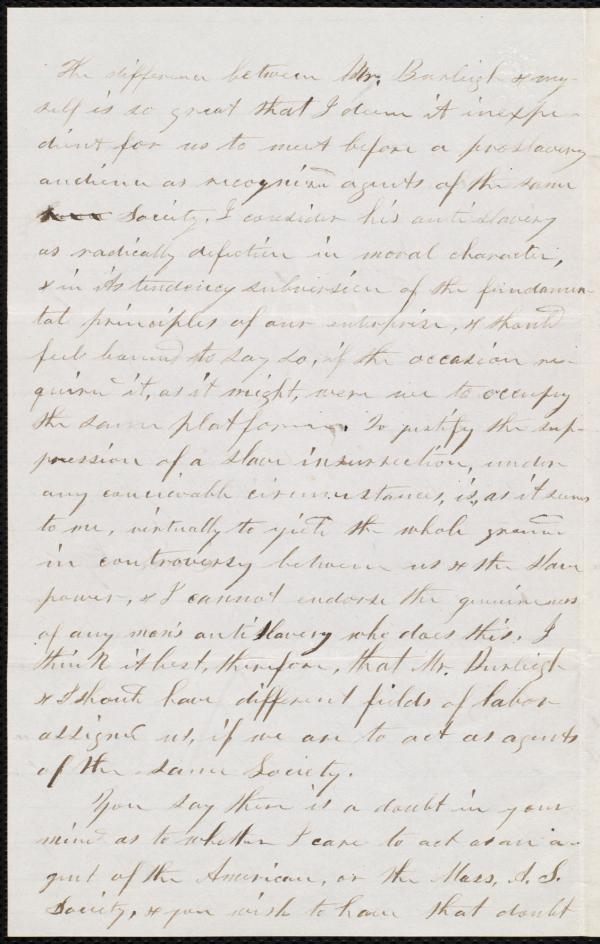 The difference between Mr. Burleigh & my-
self is so great that I deem it inexpe-
dient for us to meet before a proslavery
audience as recognized agents of the same
Society. I consider his anti slavery
as radically defective in moral character,
& in its tendency subversion of the fundamen-
tal principles of our enterprise, & should
feel bound to say so, if the occasion re-
quired it, as it might, were we to occupy
the same platform. To justify the sup-
pression of a slave insurrection, under
any conceivable circumstances, is, as it seems
to me, virtually to yield the whole ground
in controversy between us & the slave
power, & I cannot endorse the genuineness
of any man's anti slavery who does this. I
think it best, therefore, that Mr. Burleigh
& I should have different fields of labor
assigned us, if we are to act as agents
of the same Society.
You say there is a doubt in your
mind as to whether I care to act as an a-
gent of the American, or the Mass. A. S.
Society, & you wish to have that doubt